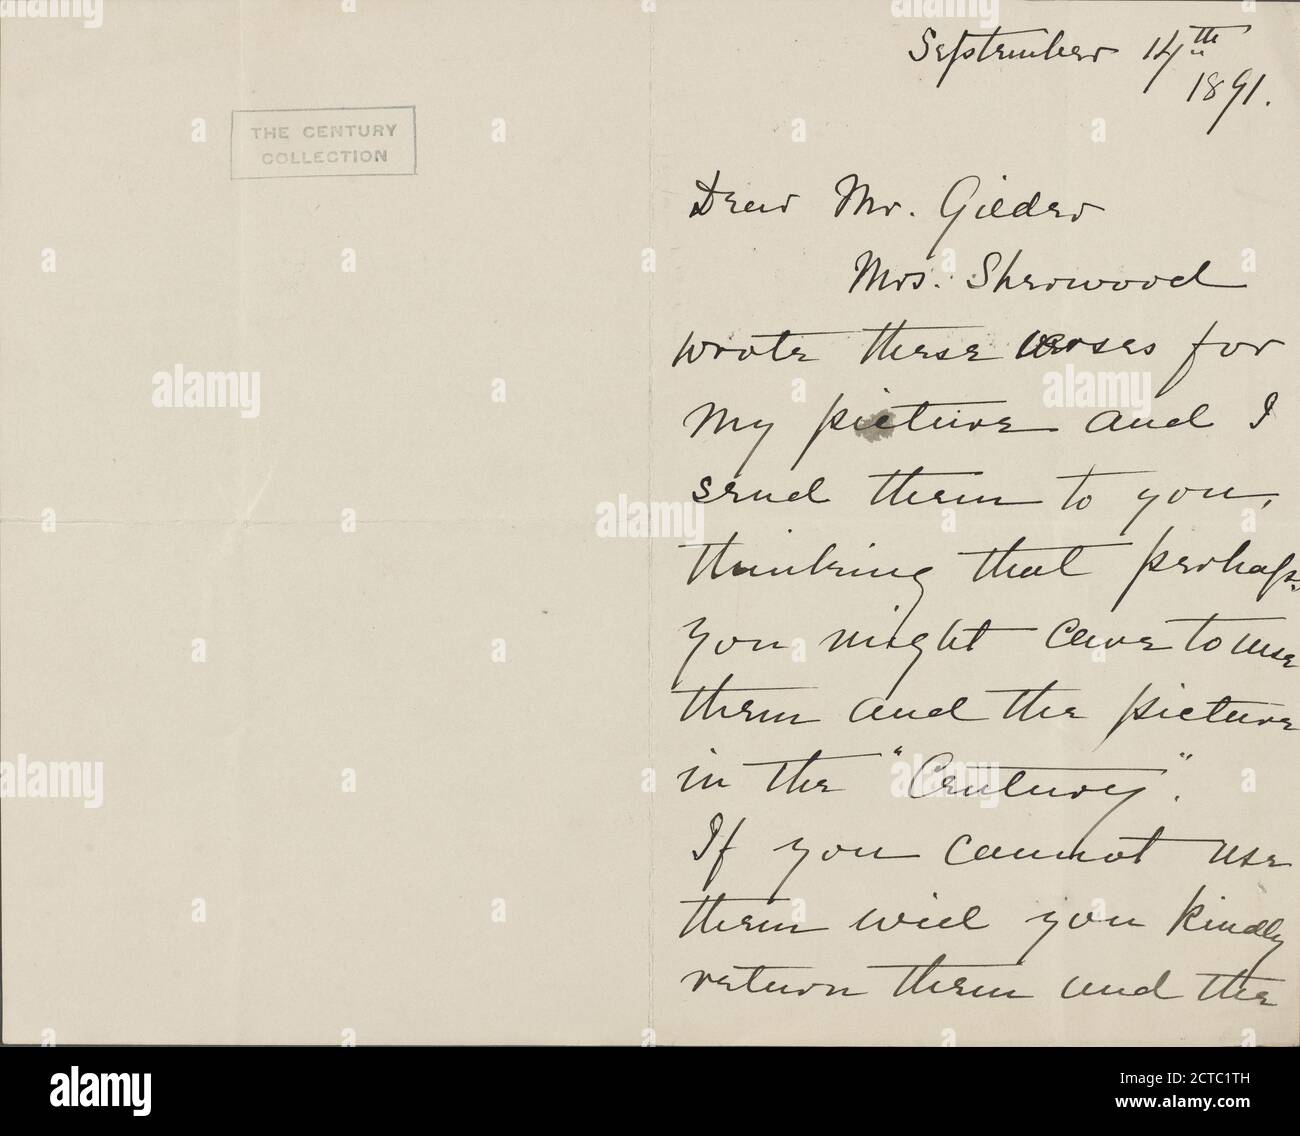 THE CENTURY
COLLECTION
September 14th
1891.
Dear Mr. Gilder
Mrs. Sherwood
wrote these verses for
my picture and I
send them to you,
thinking that perhaps
you might care to use
them and the picture
in the "Century".
If you cannot use
them will you kindly
return them and the
alamy
alamy
alamy
alamy
alamy
alamy
Image ID: 2CTC1TH
www.alamy.com